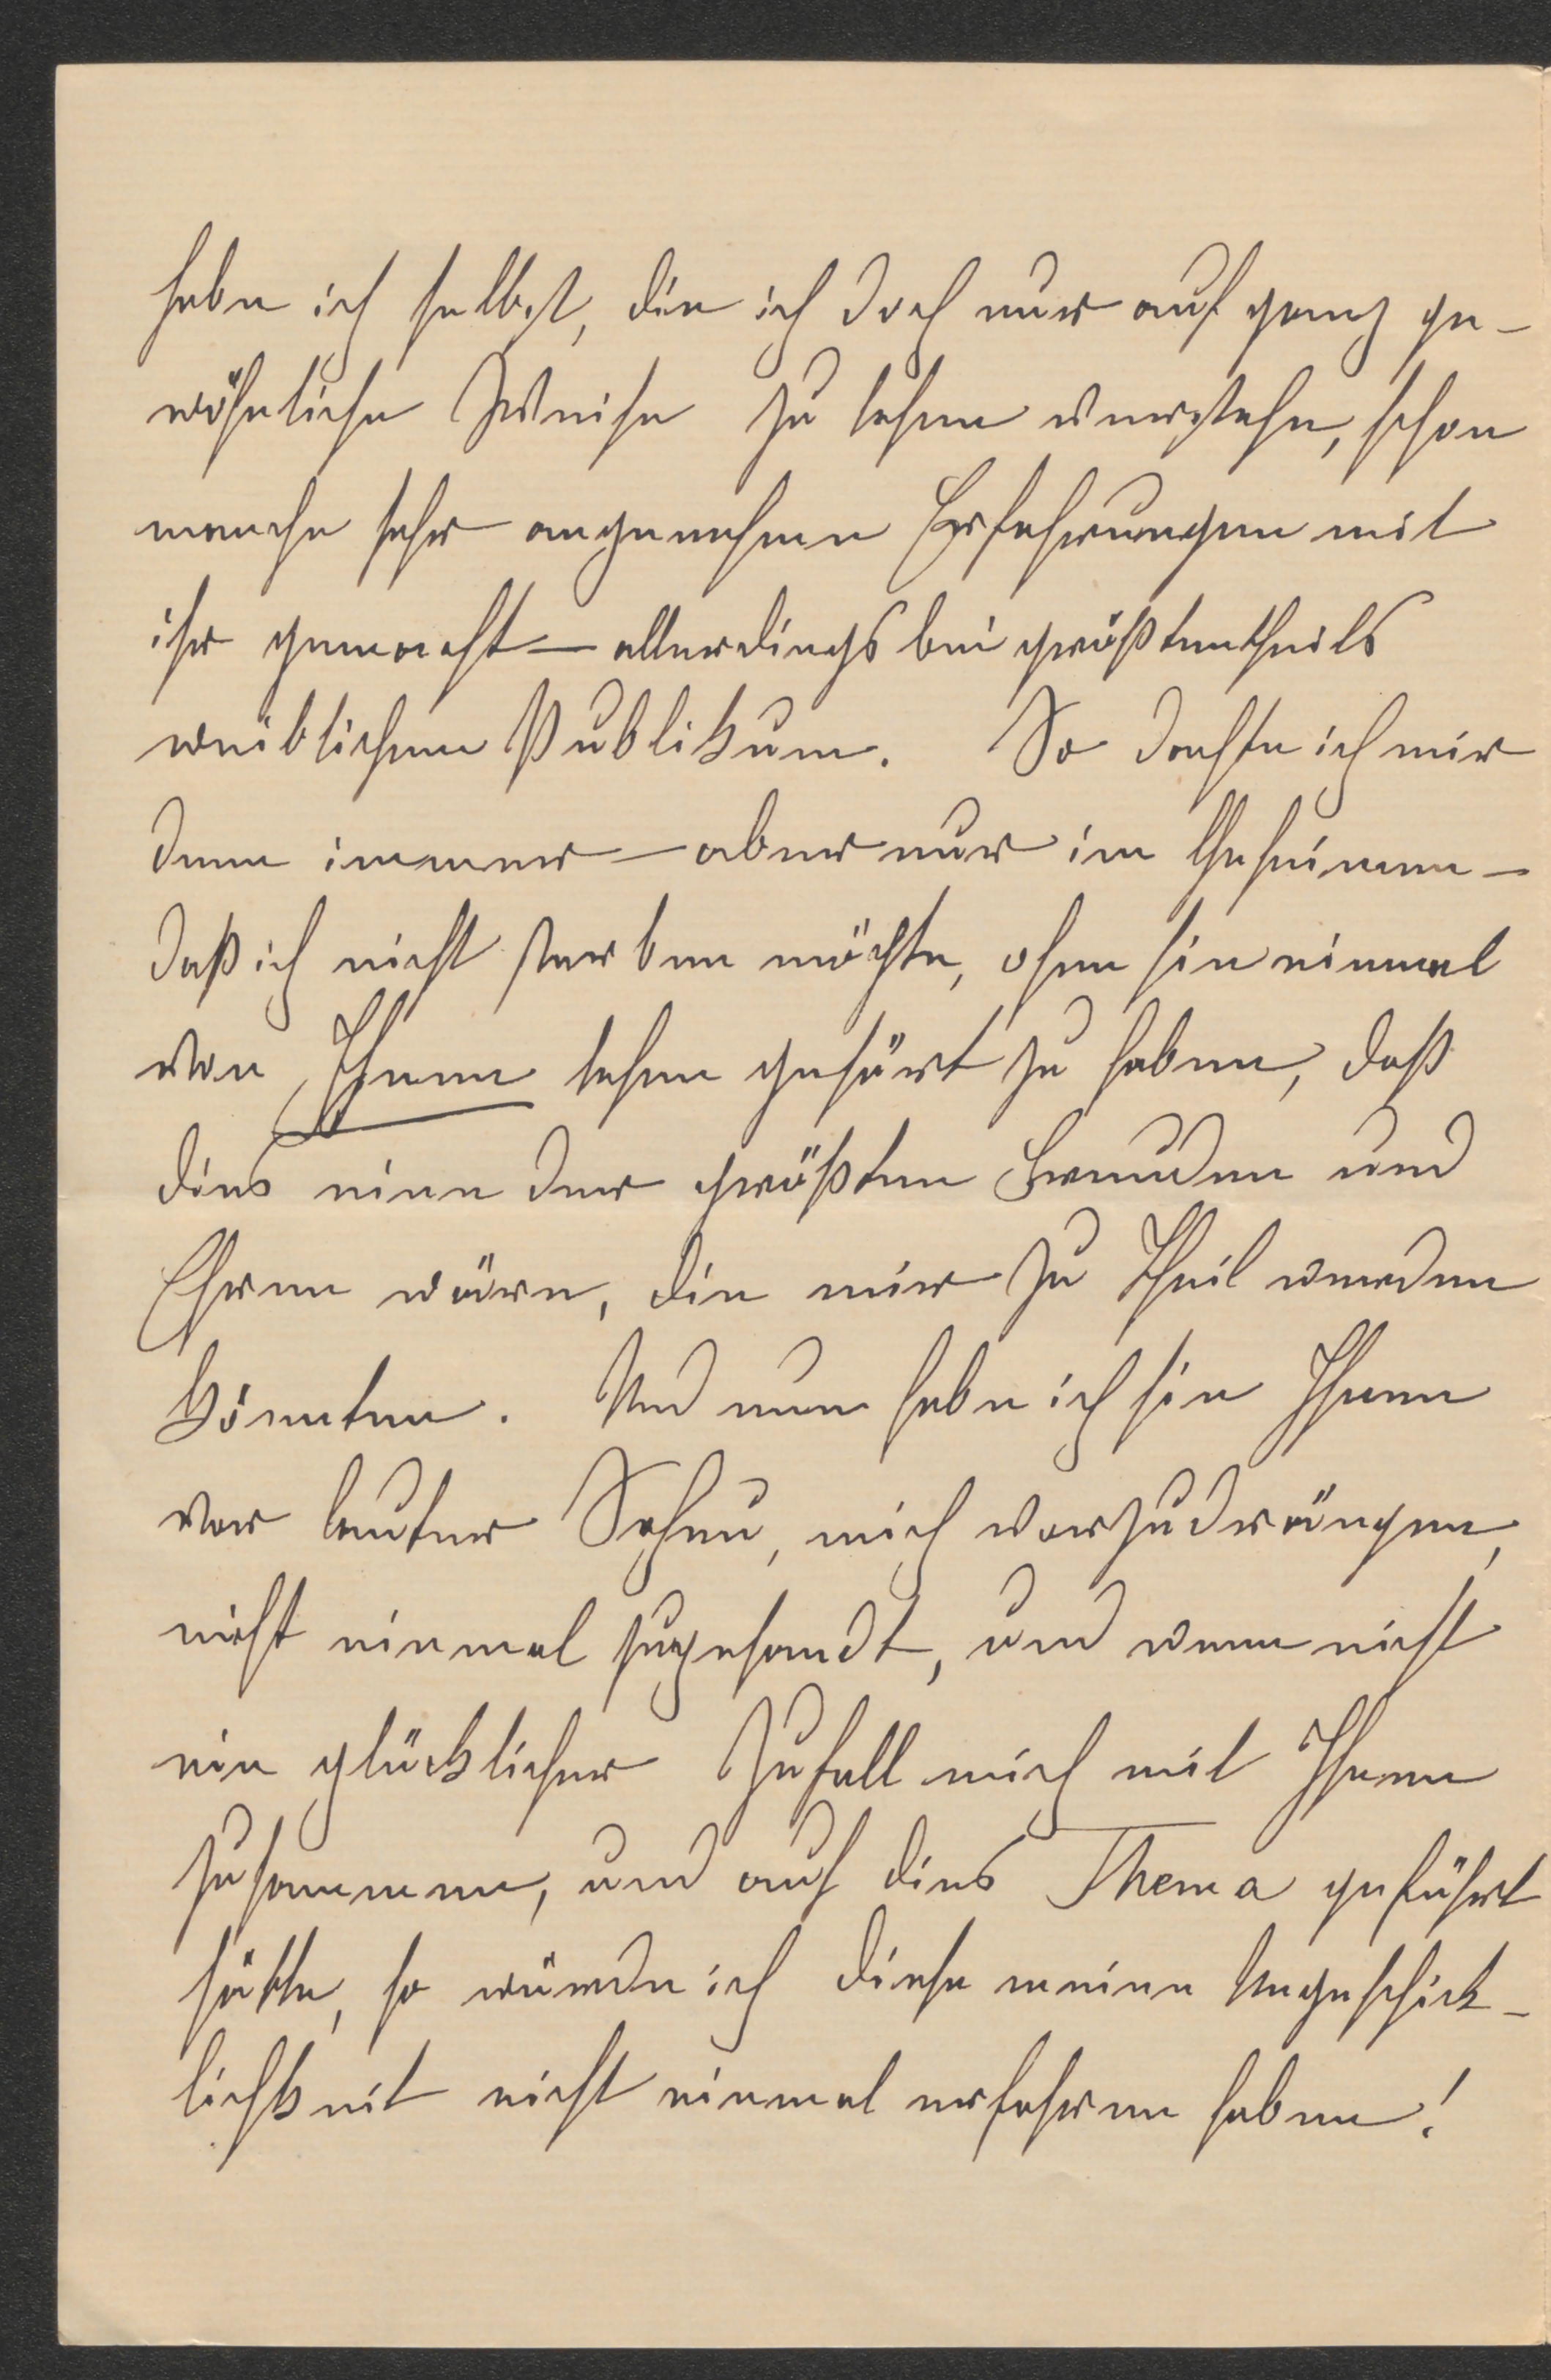 habe ich selbst, die ich doch nur auf ganz ge-
wöhnliche Weise zu lesen verstehe, schon
manche sehr angenehme Erfahrungen mit
ihr gemacht – allerdings bei größtentheils
weiblichem Publikum. So dachte ich mir
denn immer – aber nur im Geheimen –
daß ich nicht sterben möchte, ohne sie einmal
von Ihnen lesen gehört zu haben, daß
dies eine der größten Freuden und
Ehren wären, die mir zu Theil werden
könnten. Und nun habe ich sie Ihnen
vor lauter Scheu, mich vorzudrängen,
nicht einmal zugesandt, und wenn nicht
ein glücklicher Zufall mich mit Ihnen
zusammen, und auf dies Thema geführt
hätte, so würde ich diese meine Ungeschick-
lichkeit nicht einmal erfahren haben!